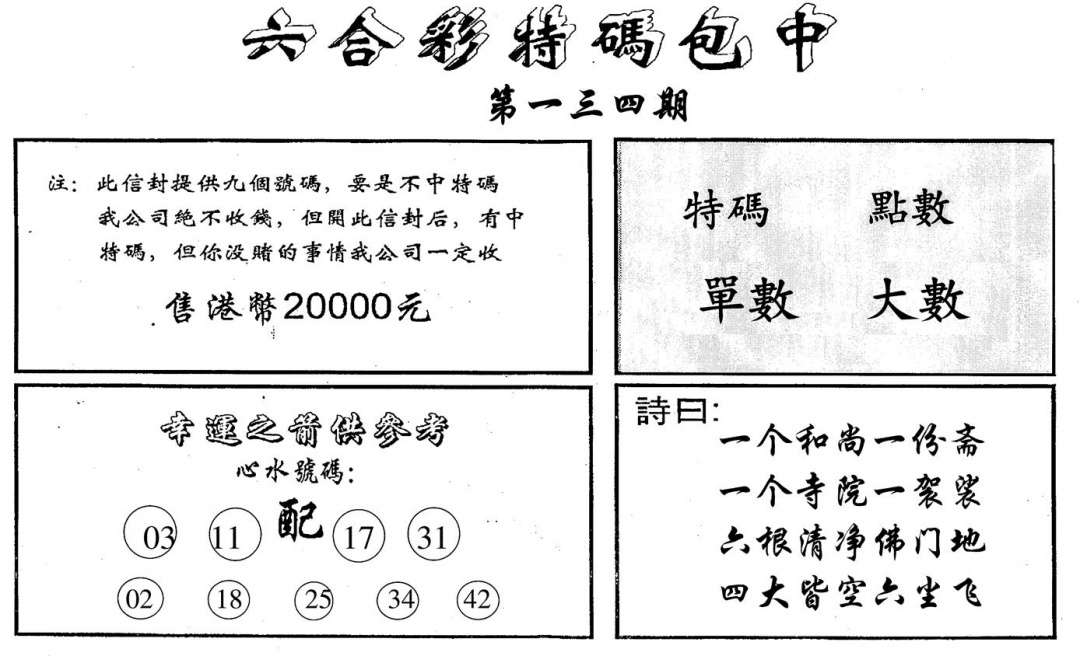 六合彩特碼包中
第一三四期
注：此信封提供九個號碼，要是不中特碼
我公司絕不收錢，但開此信封后，有中
特碼，但你没賭的事情我公司一定收
售港幣20000元
特碼 點數
單數 大數
幸運之箭供參考
心水號碼：
03 11 配 17 31
02 18 25 34 42
詩曰：
一个和尚一份斋
一个寺院一袈裟
六根清净佛门地
四大皆空六尘飞